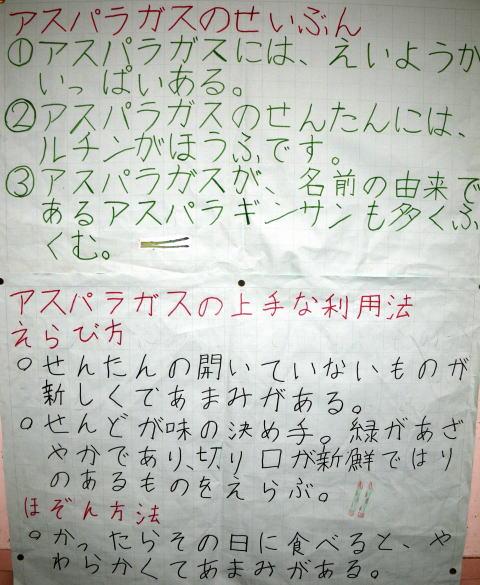 アスパラガスのせいぶん
①アスパラガスには、えいようが
いっぱいある。
②アスパラガスのせんたんには、
ルチンがほうふです。
③アスパラガスが、名前の由来で
あるアスパラギンサンも多くふ
くむ。
アスパラガスの上手な利用法
えらび方
○せんたんの開いていないものが
新しくてあまみがある。
○せんどが味の決め手。緑があざ
やかであり、切り口が新鮮ではり
のあるものをえらぶ。
ほぞん方法
○かったらその日に食べると、や
わらかくてあまみがある。